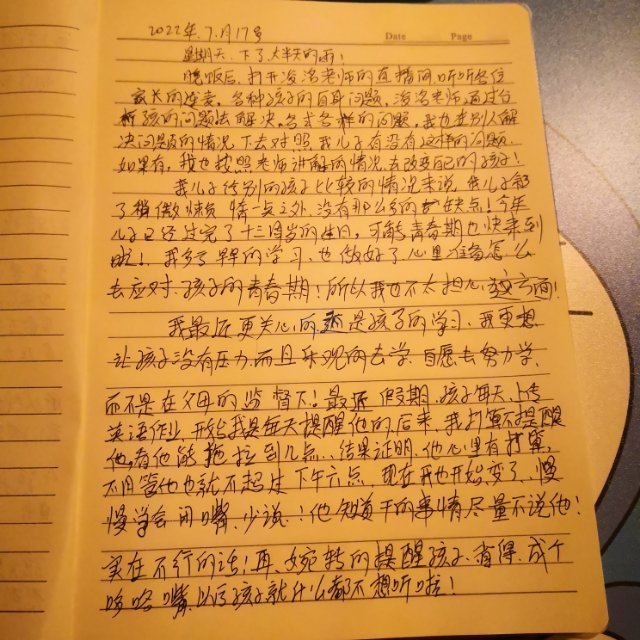 2022年.7.月17号
Date Page
星期天.下了大半天的雨!
晚饭后.打开海洺老师的直播间.听听各位
家长的连麦.各种孩子的自身问题,海洺老师通过分
析孩的问题去解决.各式各样的问题,我也
决问题的情况下去对照我儿子有没有这样的问题.
如果有,我也按照老师讲解的情况去改变自己的孩子!
我儿子从别的孩子比较的情况来说.我儿子都
了稍微懒惰一点之外.没有那么多的缺点!今年
儿子已经过完了十三周岁的生日,可能青春期也快来到
啦!我多了早早的学习.也做好了心里准备怎么
去应对.孩子的青春期!所以我也不太担心这方面!
我最近更关心的还是孩子的学习.我更想
让孩子没有压力.而且乐观的去学.自愿去努力学.
而不是在父母的监督下!最近假期.孩子每天上传
英语作业.开始我是每天提醒他的.后来.我打算不提醒
他.看他能拖拉到几点..结果证明.他心里有打算,
不用管他也就不超过下午六点.现在我也开始变了.慢
慢学会闭嘴.少说.!他知道干的事情尽量不说他!
实在不行的话!再.婉转的提醒孩子.省得.成个
哆咯嘴.以后孩子就什么都不想听啦!